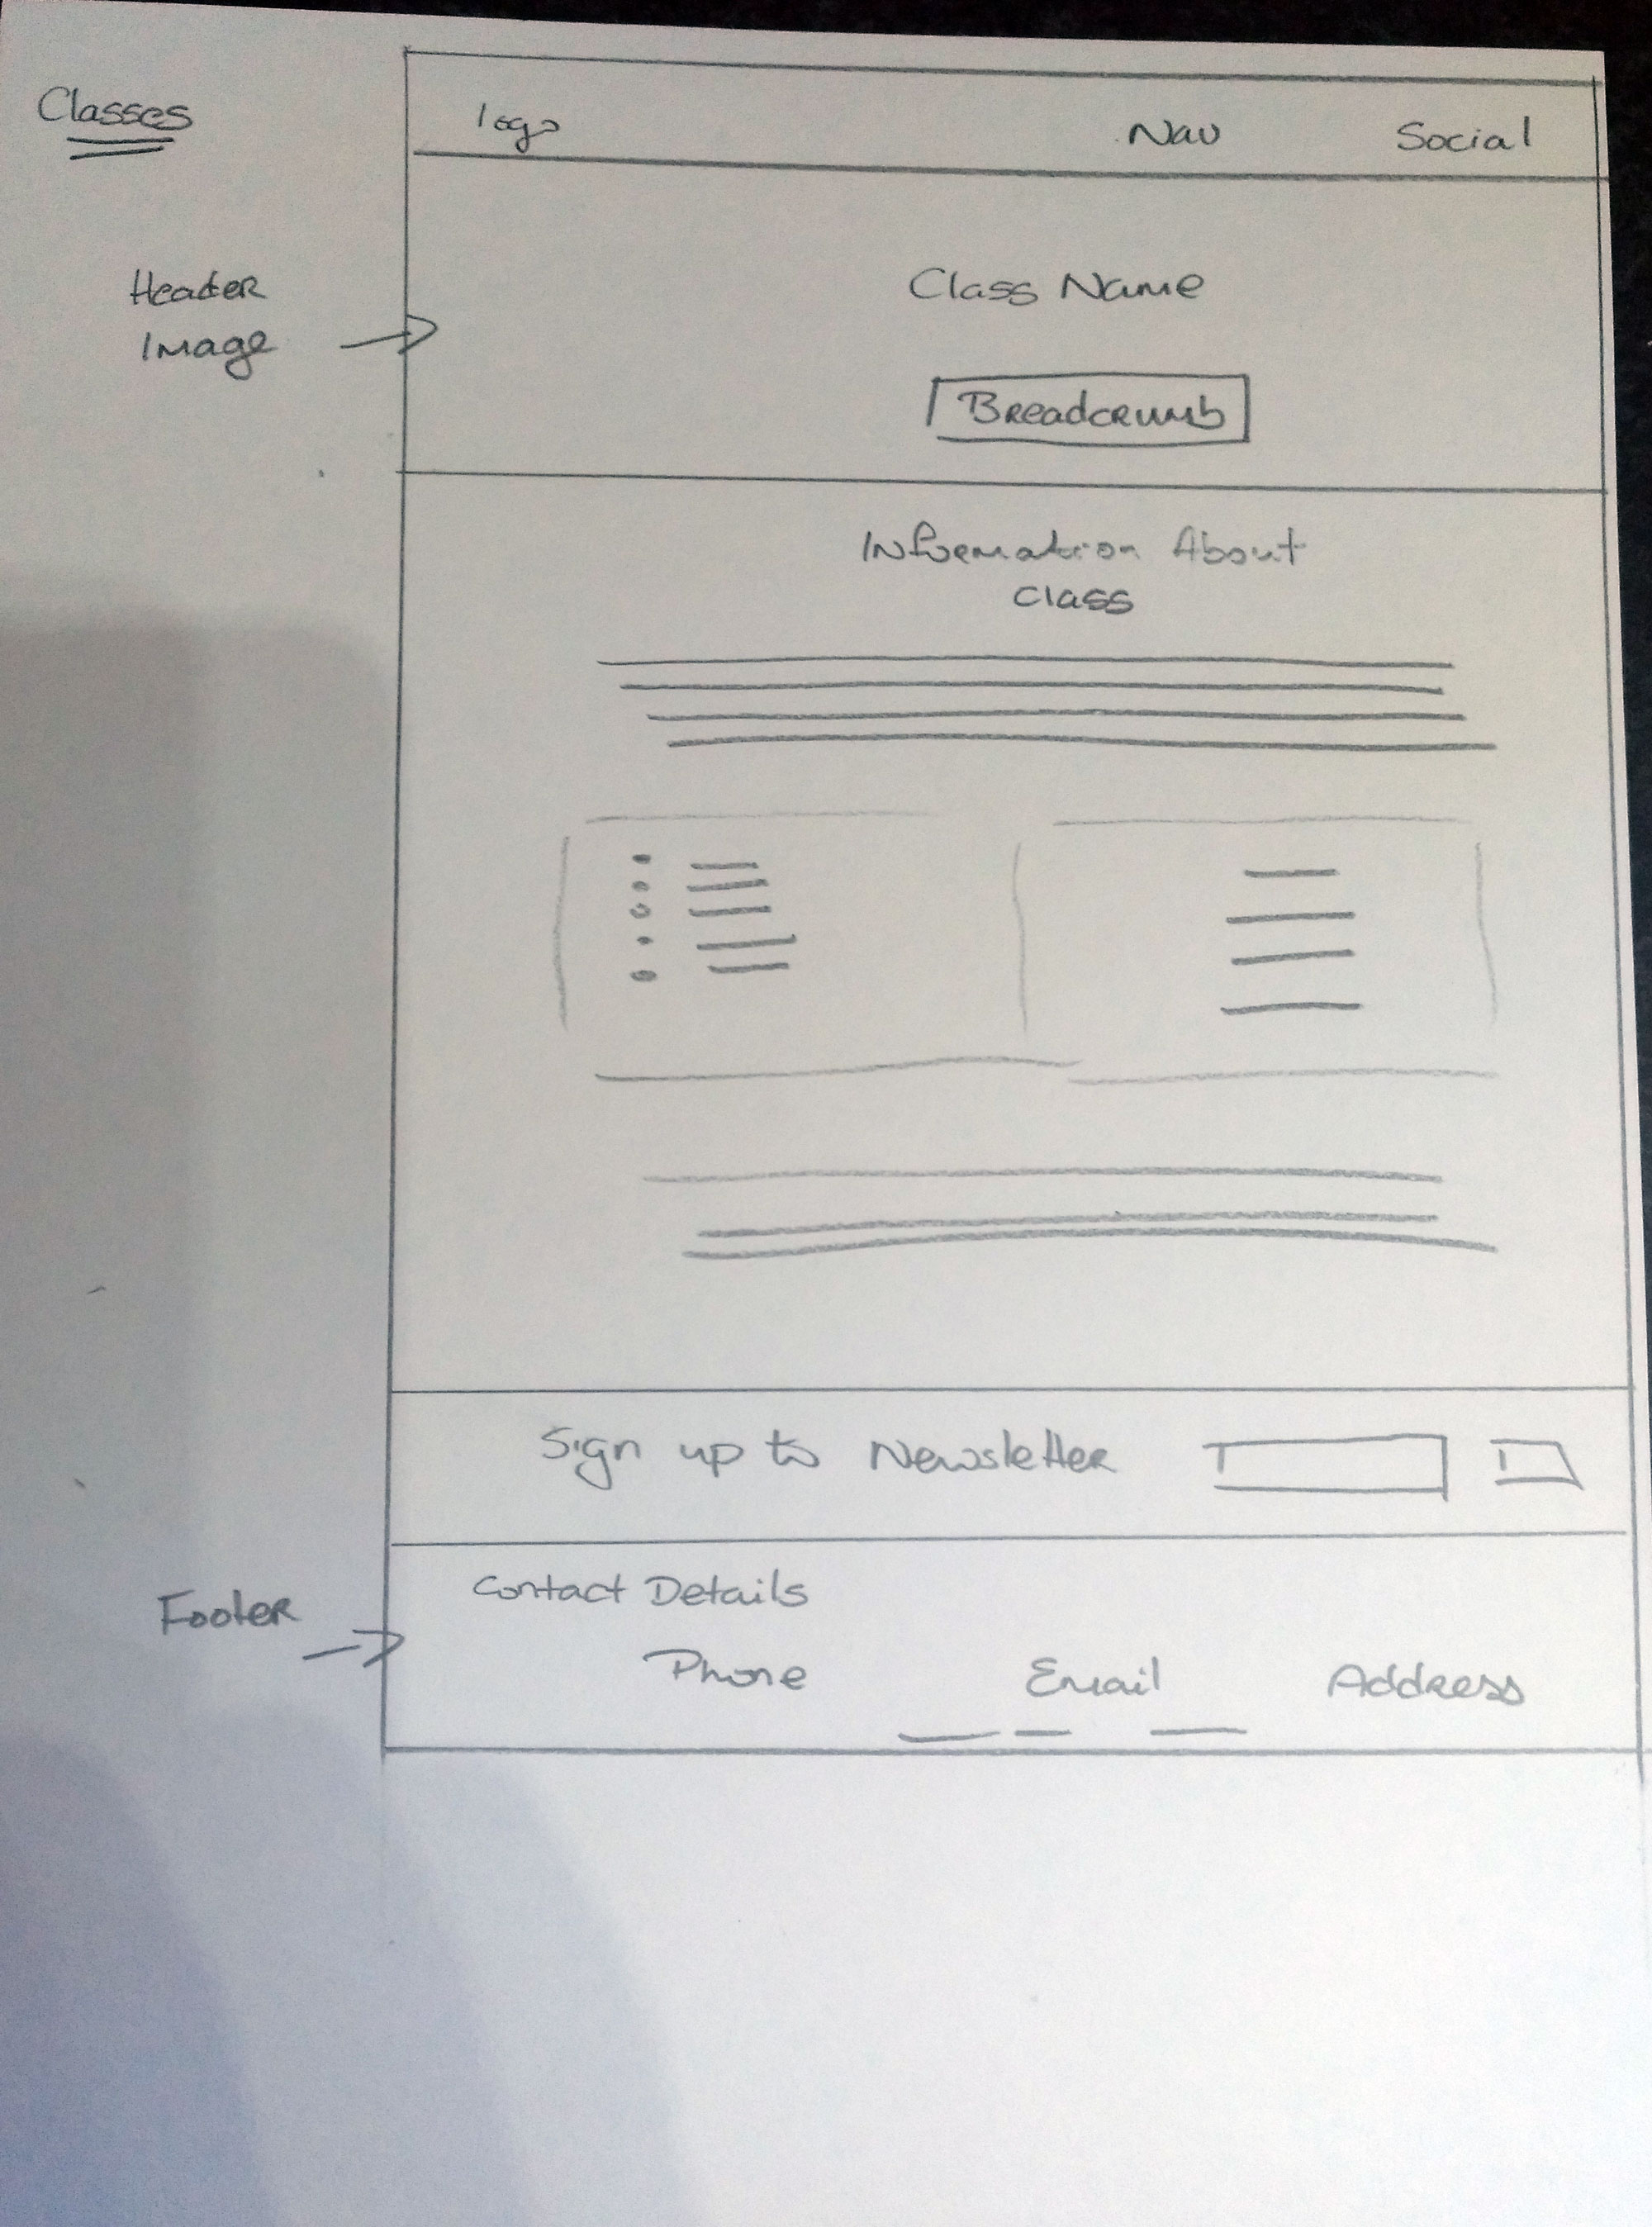 Classes
logo Nav Social
Header
Image
Class Name
Breadcrumb
Information About
Class
Sign up to Newsletter
Footer
Contact Details
Phone Email Address